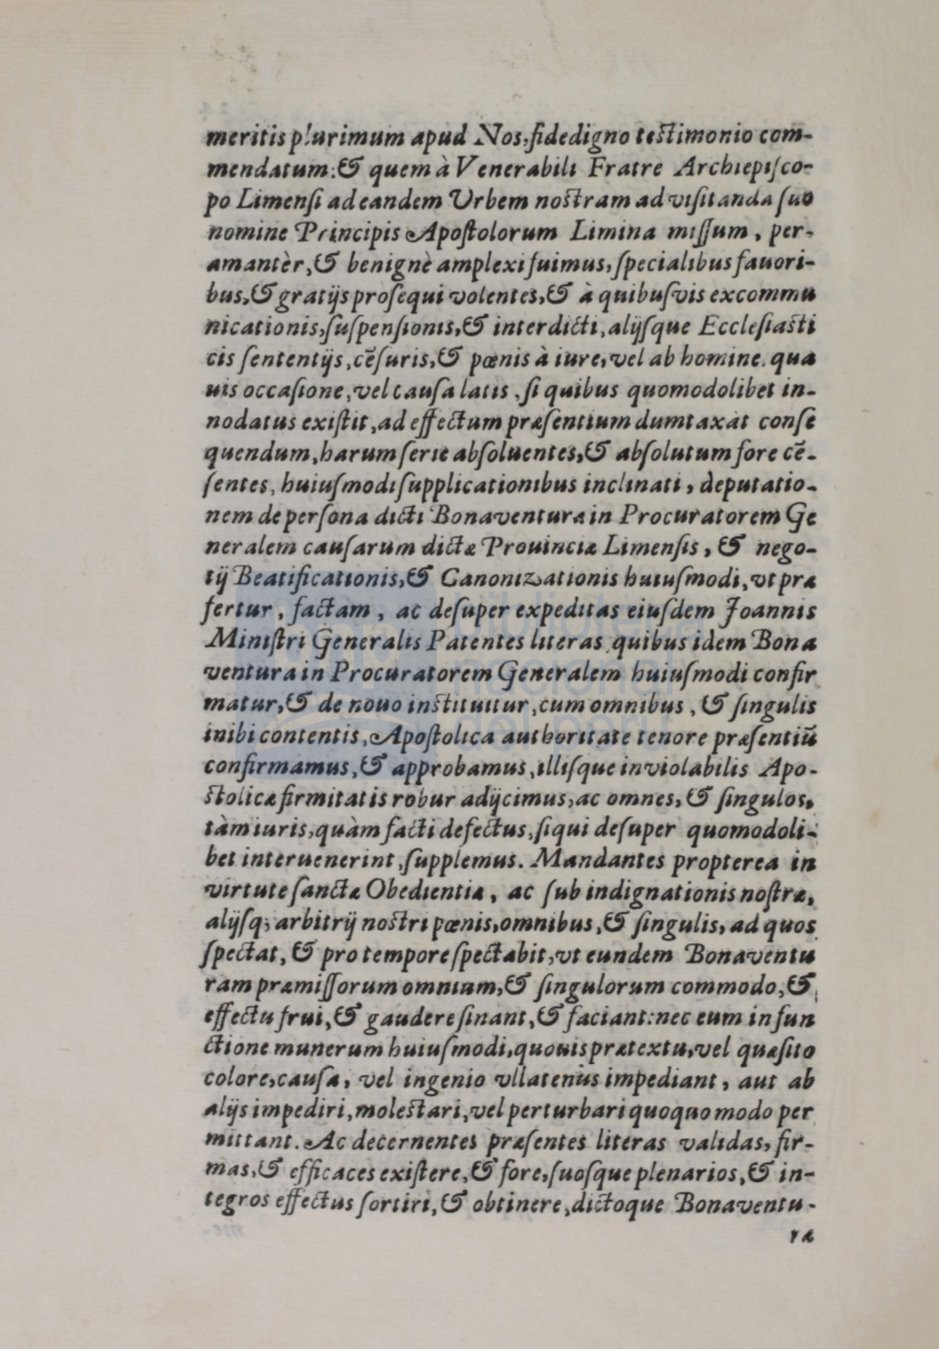 meritis plurimum apud Nos, fidedigno testimonio com-
mendatum: & quem à Venerabili Fratre Archiepisco-
po Limensi ad eandem Urbem nostram ad visitanda suo
nomine Principis Apostolorum Limina missum, per-
amantèr, & benignè amplexi fuimus, specialibus fauori-
bus, & gratijs prosequi volentes, & à quibusvis excommu
nicationis, suspensionis, & interdicti, alijsque Ecclesiasti
cis sententijs, cēsuris, & pœnis à iure, vel ab homine. qua
uis occasione, vel causa latis, si quibus quomodolibet in-
nodatus existit, ad effectum præsentium dumtaxàt conse
quendum, harum serie absoluentes, & absolutum fore cē-
sentes, huiusmodi supplicationibus inclinati, deputatio-
nem de persona dicti Bonaventuræ in Procuratorem Ge
neralem causarum dictæ Prouinciæ Limensis, & nego-
tij Beatificationis, & Canonizationis huiusmodi, vt præ
fertur, factam, ac desuper expeditas eiusdem Joannis
Ministri Generalis Patentes literas quibus idem Bona
ventura in Procuratorem Generalem huiusmodi confir
matur, & de nouo instituitur, cum omnibus, & singulis
inibi contentis, Apostolica authoritate tenore præsentiū
confirmamus, & approbamus, illisque inviolabilis Apo-
stolicæ firmitatis robur adijcimus, ac omnes, & singulos,
tàm iuris, quàm facti defectus, siqui desuper quomodoli-
bet interuenerint, supplemus. Mandantes propterea in
virtute sanctæ Obedientiæ, ac sub indignationis nostræ,
alijsq; arbitrij nostri pœnis, omnibus, & singulis, ad quos
spectat, & pro tempore spectabit, vt eundem Bonaventu
ram præmissorum omnium, & singulorum commodo, &
effectu frui, & gaudere sinant, & faciant: nec eum in fun
ctione munerum huiusmodi, quouis prætextu, vel quæsito
colore, causa, vel ingenio vllatenùs impediant, aut ab
alijs impediri, molestari, vel perturbari quoquo modo per
mittant. Ac decernentes præsentes literas validas, fir-
mas, & efficaces existere, & fore, suosque plenarios, & in-
tegros effectus sortiri, & obtinere, dictoque Bonaventu-
ræ